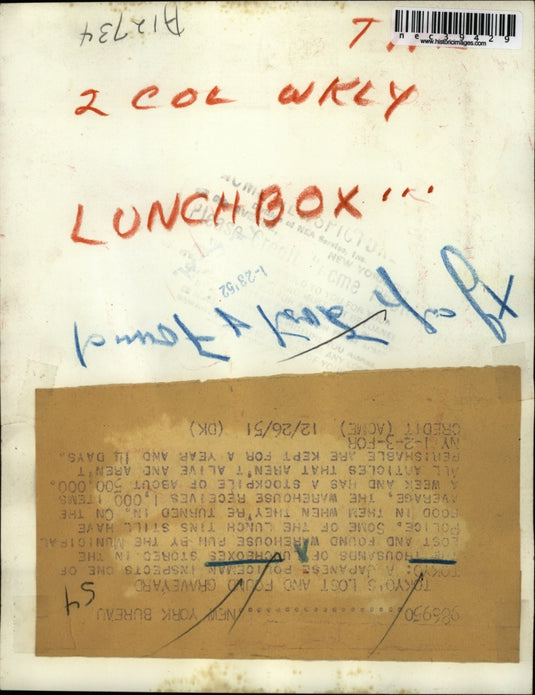 A12734
nec39429
www.historicimages.com
2 COL WKLY
LUNCHBOX...
NEA Service, Inc.
NEW YORK
1-23'52
Lost & Found
986950 NEW YORK BUREAU
TOKYO'S LOST AND FOUND GRAVEYARD
TOKYO: A JAPANESE POLICEMAN INSPECTS ONE OF
THOUSANDS OF LUNCHBOXES STORED IN THE
LOST AND FOUND WAREHOUSE RUN BY THE MUNICIPAL
POLICE. SOME OF THE LUNCH TINS STILL HAVE
FOOD IN THEM WHEN THEY'RE TURNED IN. ON THE
AVERAGE, THE WAREHOUSE RECEIVES 1,000 ITEMS
A WEEK AND HAS A STOCKPILE OF ABOUT 500,000.
ALL ARTICLES THAT AREN'T ALIVE AND AREN'T
PERISHABLE ARE KEPT FOR A YEAR AND 14 DAYS.
NY-1-2-3-FOR
CREDIT (ACME) 12/26/51 (DK)